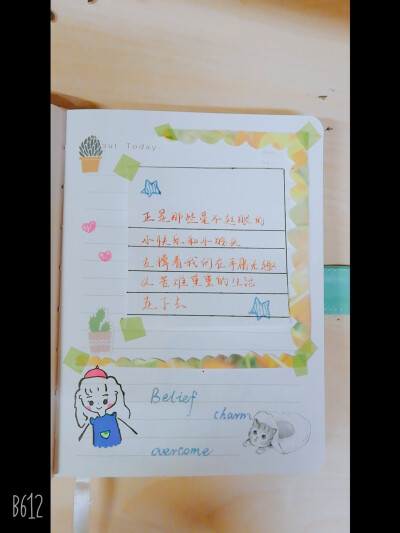 out Today
正是那些毫不起眼的
小快乐和小确幸
支撑着我们在平庸无趣
又苦难重重的生活
走下去
Belief
charm
overcome
B612